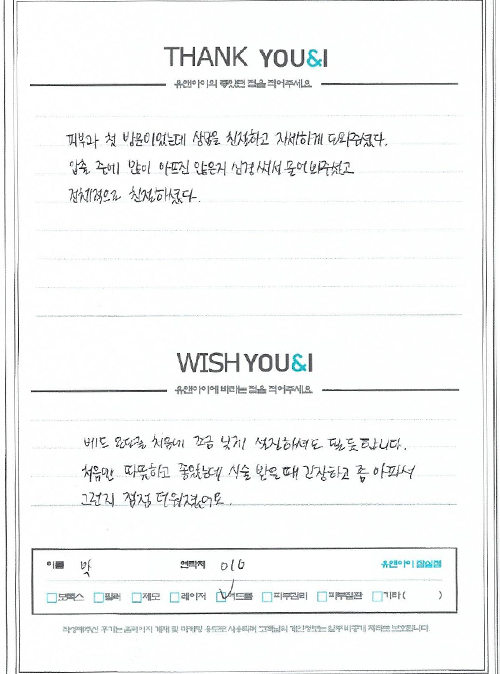 THANK YOU&I
유앤아이의 좋았던 점을 적어주세요
피부과 첫 방문이었는데 상담을 친절하고 자세하게 도와주셨다.
압출 중에 많이 아프진 않은지 신경써서 물어봐주셨고
전체적으로 친절하셨다.
WISH YOU&I
유앤아이에 바라는 점을 적어주세요
베드 온도를 처음에 조금 낮게 설정하셔도 될듯합니다.
처음만 따뜻하고 좋았는데 시술 받을 때 긴장하고 좀 아파서
그런지 점점 더워졌어요.
이름 박 연락처 010 유앤아이 잠실점
보톡스 필러 제모 레이저 여드름 피부관리 피부질환 기타 ( )
작성해주신 후기는 홈페이지 게재 및 마케팅 용도로 사용되며 고객님의 개인정보는 일부 비공개 처리로 보호됩니다.